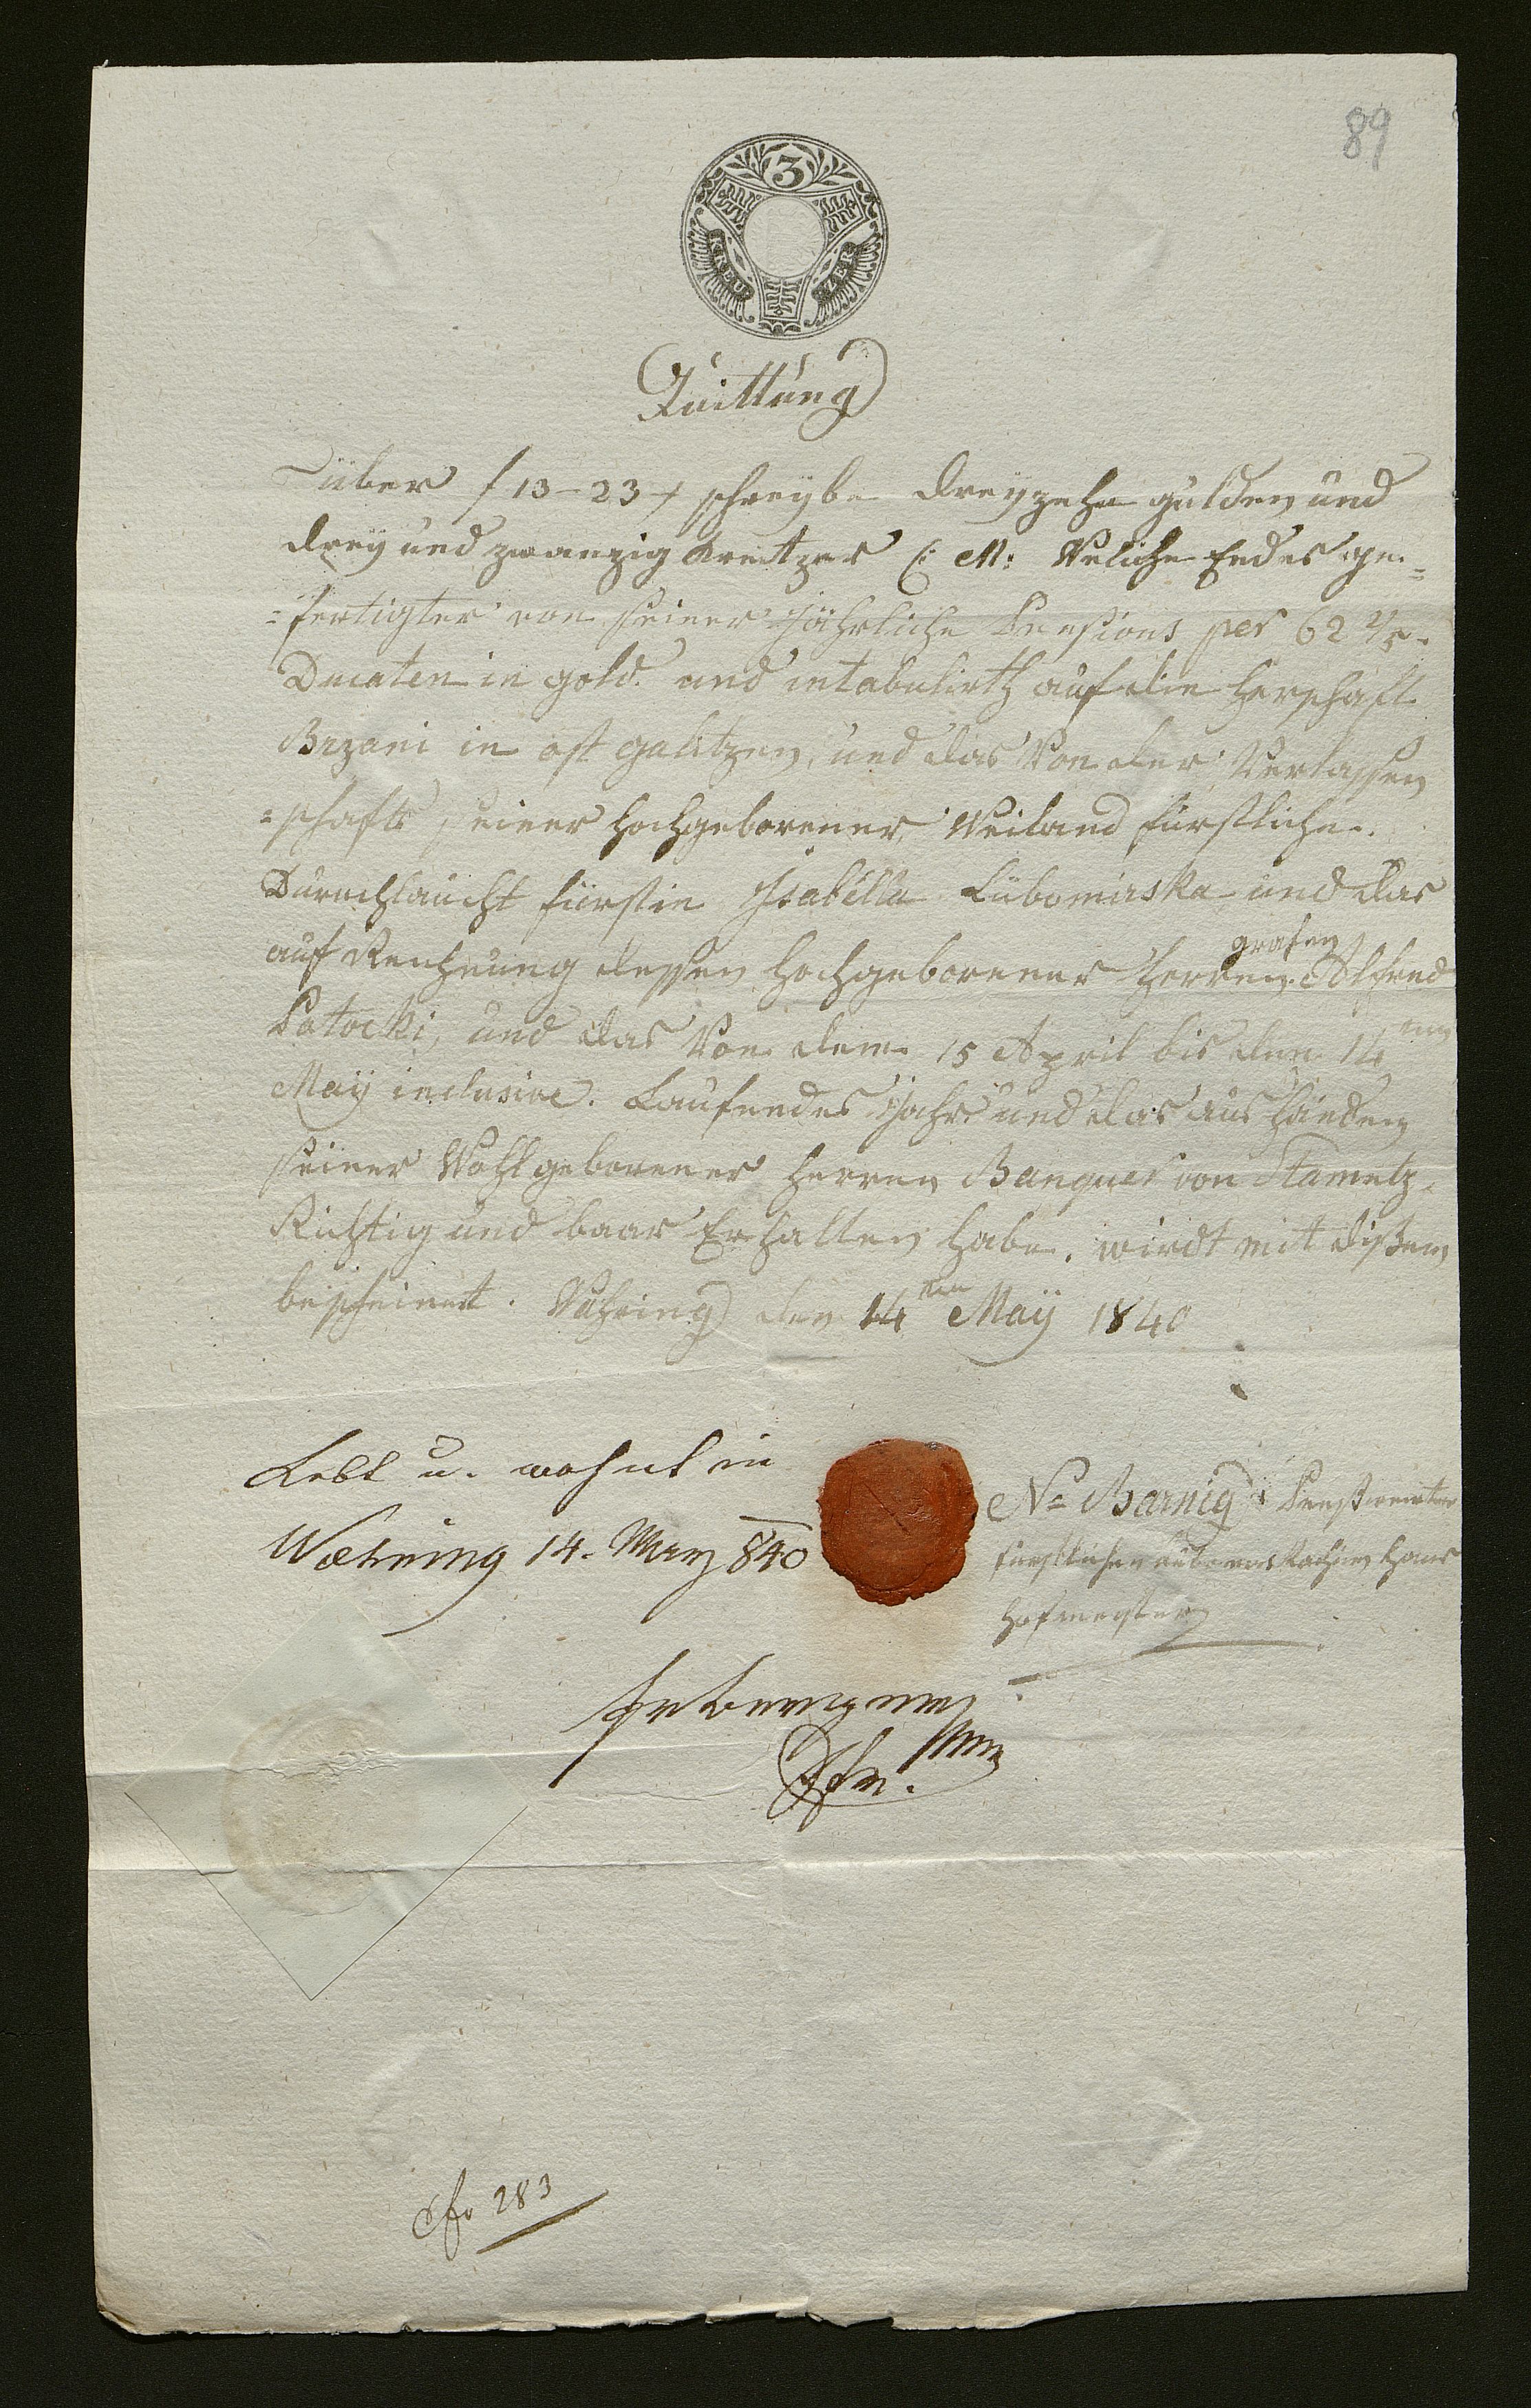 89
3
KREU ZER
Quittung
über f 13-23 x schreybe dreyzehn gulden und
drey und zwanzig Kreitzer C: M: Weliche Endes ge=
=fertigter von seiner Jährliche Pensions per 62 2/5
Ducaten in gold. und intabulirth auf die Herschaft
Brzani in ost galitzen, und das Von der Verlassen
=schafts seiner Hochgeborener, Weiland fürstliche
Durchlaucht fürstin Isabélla Lubomirska und das
auf Rechnung dessen Hochgeborener Herren grafen Alfred
Potocki, und das Von dem 15 April bis den 14ten
Maÿ inclusive. Laufendes Jahr und das aus Händen
seiner Wohlgeborener Herren Banquer von Stametz
Richtig und baar Erhalten habe, wirdt mit dißem
bescheinet. Währing den 14ten Maÿ 1840
Lebt u. wohnt in
Waehring 14. May 840
N= Barnig Pensionirter
fürstlicher Lubomirskachen Haus
Hofmeister
No 283